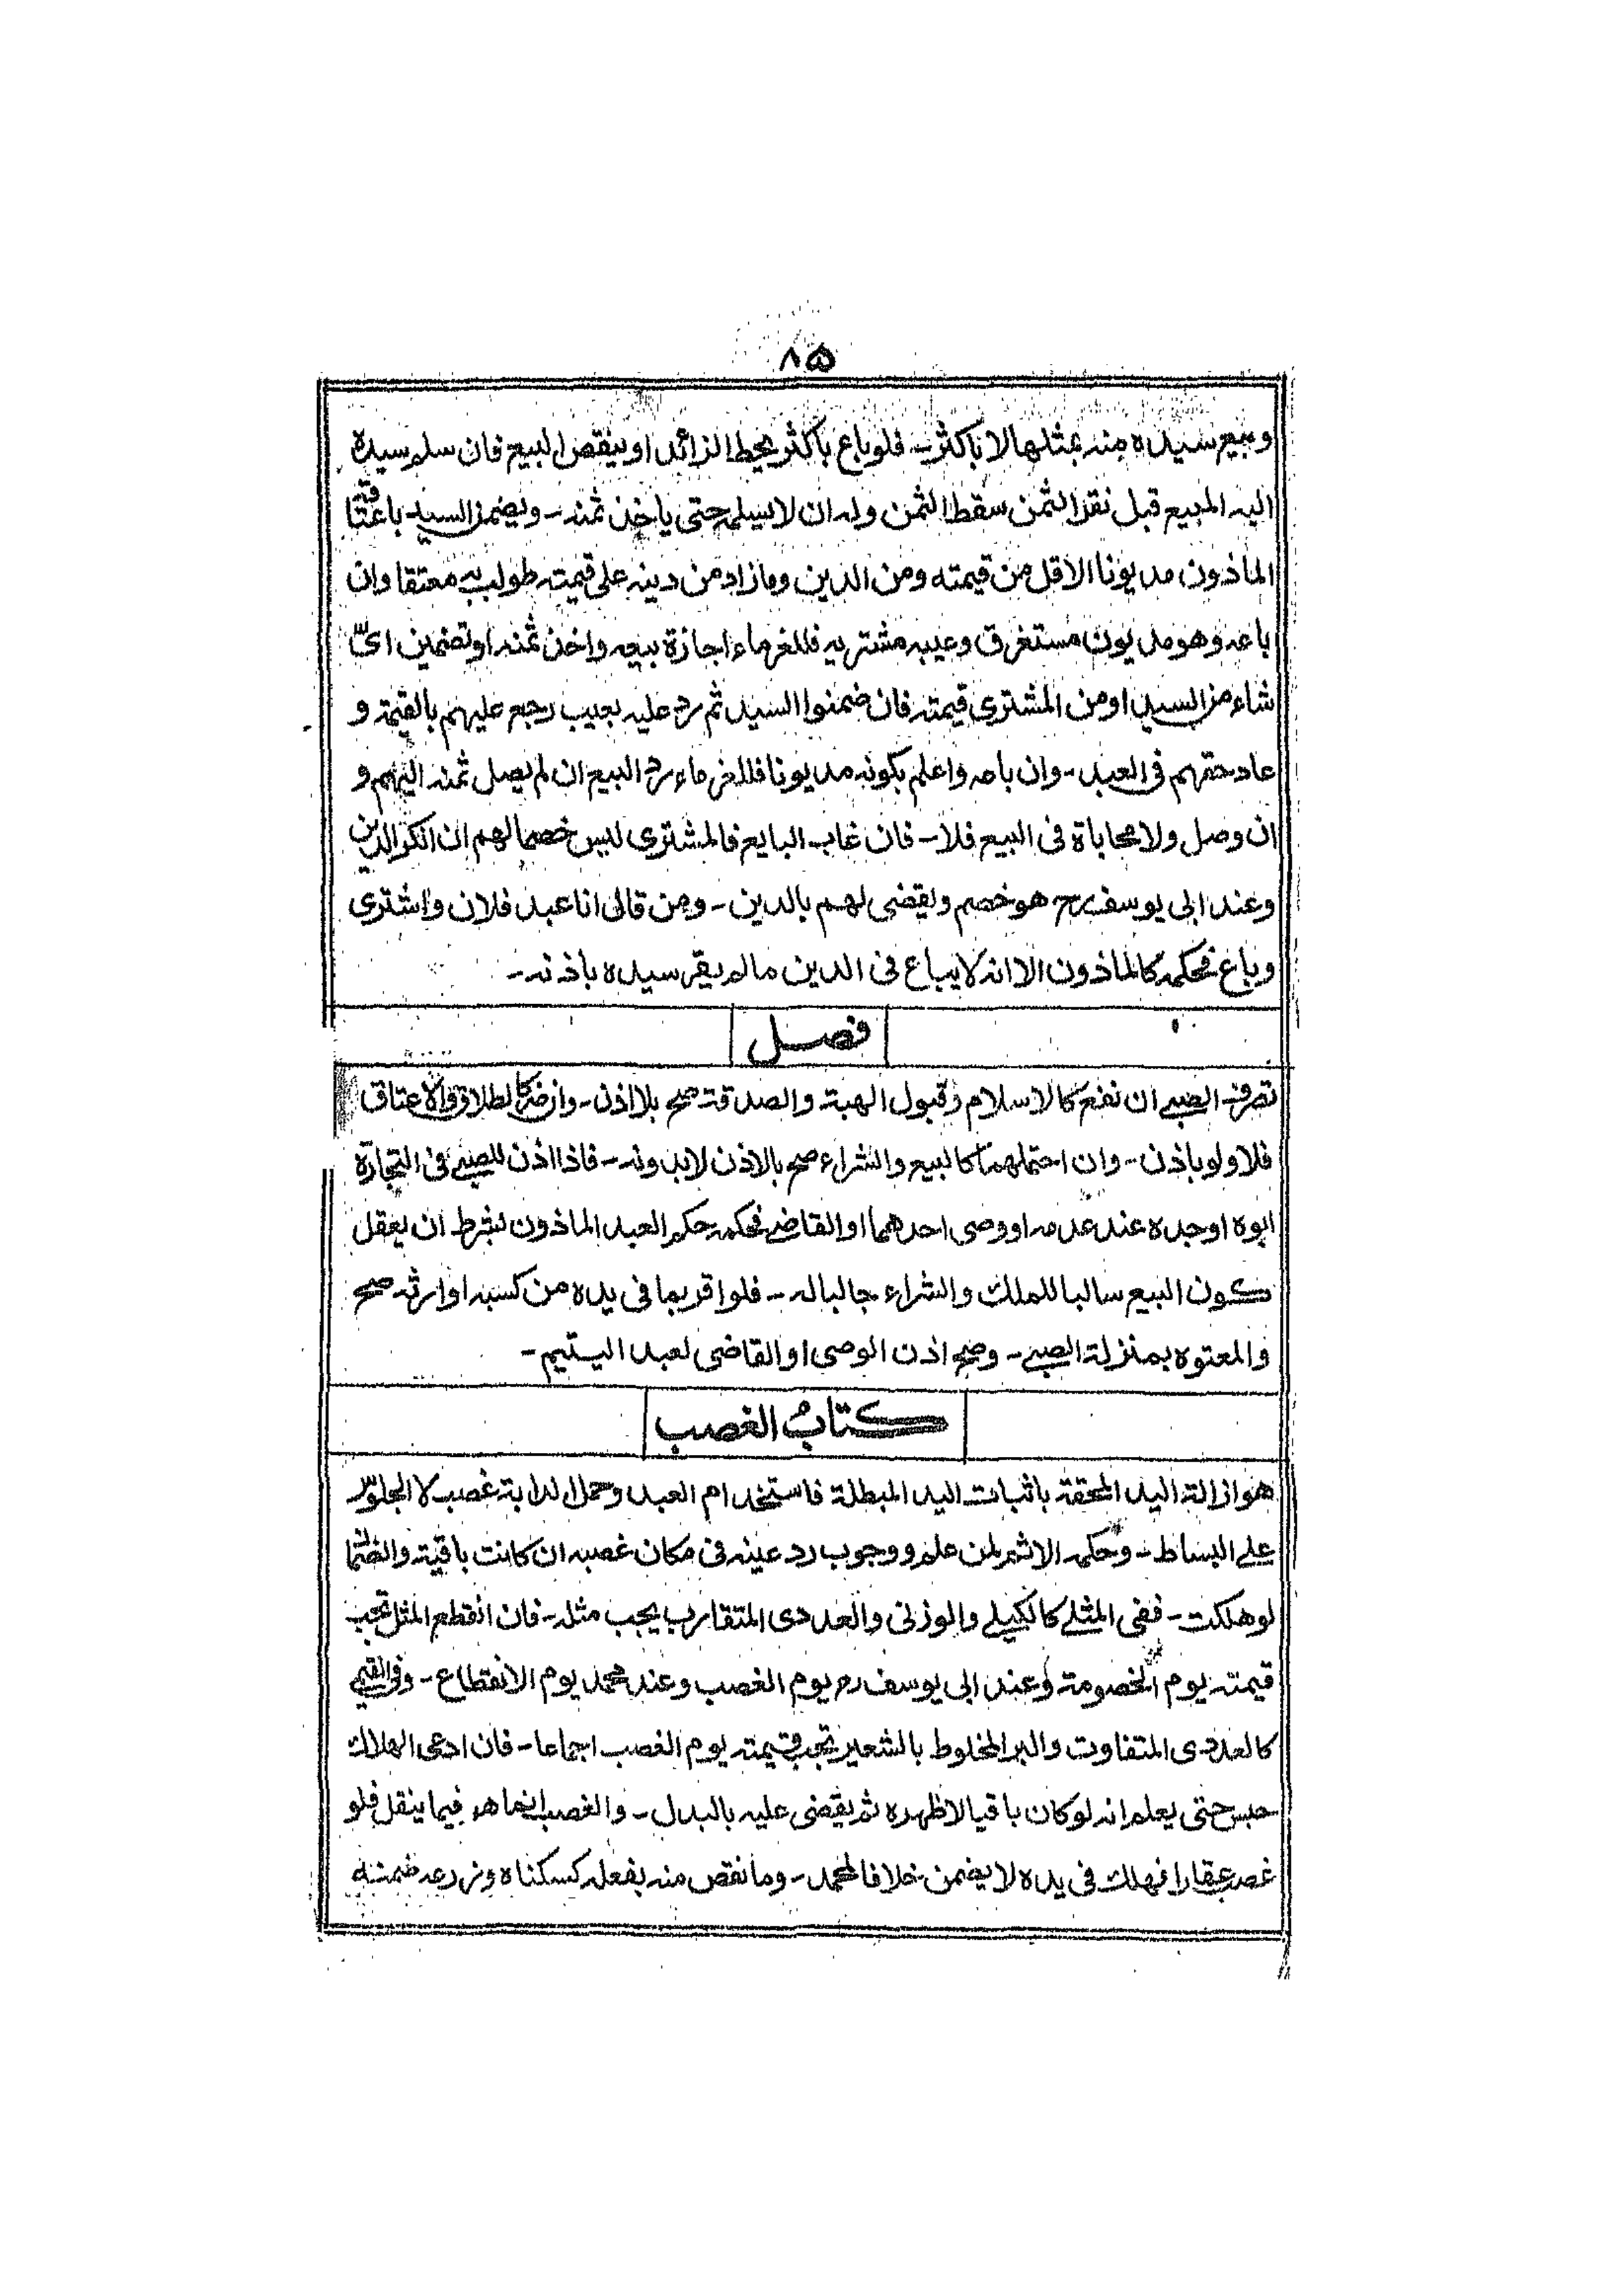 ٨٥
وببيع سيده منه بمثلها لا باكثر۔ فلو باع باكثر يحط الزائد او ينقص البيع فان سلم سيده
اليه المبيع قبل نقد الثمن سقط الثمن وله ان لا يسلمه حتى ياخذ ثمنه۔ ويضمن السيد باعتاقه
الماذون مديونا الاقل من قيمته ومن الدين وما زاد من دينه على قيمته طولب به معتقا وان
باعه وهو مديون مستغرق وعيبه مشتريه فللغرماء اجازة بيعه واخذ ثمنه او تضمين اىّ
شاء من السيد او من المشترى قيمته فان ضمنوا السيد ثم رد عليه بعيب رجع عليهم بالقيمة و
عاد حقهم فى العبد۔ وان باعه واعلم بكونه مديونا فللغرماء رد البيع ان لم يصل ثمنه اليهم و
ان وصل ولا محاباة فى البيع فلا۔ فان غاب البايع فالمشترى ليس خصما لهم ان انكر الدين
وعند ابى يوسف رح هو خصم ويقضى لهم بالدين۔ ومن قال انا عبد فلان واشترى
وباع فحكمه كالماذون الا انه لا يباع فى الدين ما لم يقر سيده باذنه۔
فصل
تصرف الصبي ان نفع كالاسلام وقبول الهبة والصدقة صح بلا اذن۔ وان ضر كالطلاق والاعتاق
فلا ولو باذن۔ وان احتملهما كالبيع والشراء صح بالاذن لا بدونه۔ فاذا اذن للصبي فى التجارة
ابوه او جده عند عدمه او وصى احدهما او القاضي فحكمه حكم العبد الماذون بشرط ان يعقل
كون البيع سالبا للملك والشراء جالبا له۔ فلو اقر بما فى يده من كسبه او ارثه صح
والمعتوه بمنزلة الصبي۔ وصح اذن الوصى او القاضى لعبد اليتيم۔
كتابُ الغصب
هو ازالة اليد المحقة باثبات اليد المبطلة فاستخدام العبد وحمل الدابة غصب لا الجلوس
علي البساط۔ وحكمه الاثم لمن علم ووجوب رد عينه فى مكان غصبه ان كانت باقية والضمان
لو هلكت۔ ففى المثلي كالكيلي والوزنى والعددى المتقارب يجب مثله۔ فان انقطع المثل تجب
قيمته يوم الخصومة وعند ابى يوسف رح يوم الغصب وعند محمد يوم الانقطاع۔ وفى القيمي
كالعددى المتفاوت والبر المخلوط بالشعير تجب قيمته يوم الغصب اجماعا۔ فان ادعى الهلاك
حبس حتى يعلم انه لو كان باقيا لاظهره ثم يقضى عليه بالبدل۔ والغصب انما هو فيما ينقل فلو
غصب عقارا فهلك فى يده لا يضمن خلافا لمحمد۔ وما نقص منه بفعله كسكناه وزرعه ضمنه